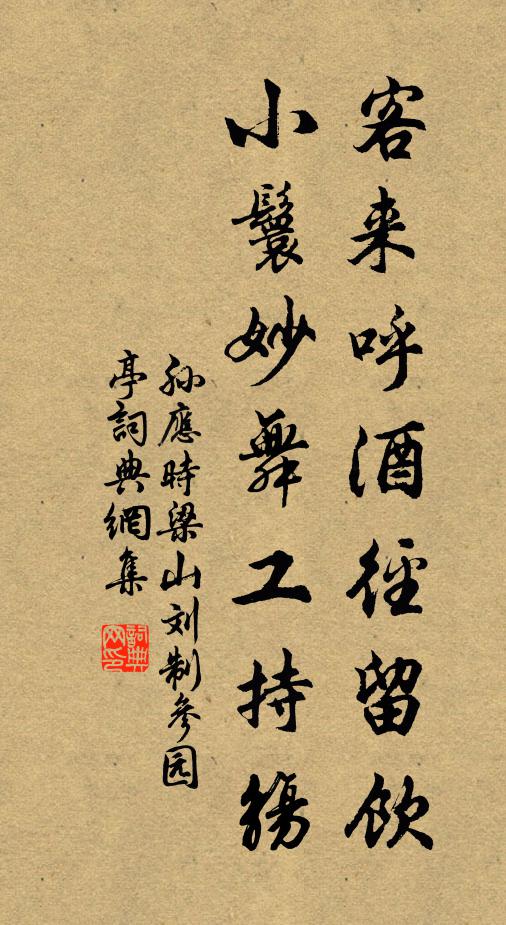 客来呼酒径留飲
小鬟妙舞工持觴
孙應時梁山刘制參园
亭詞典網集
詞典
网印